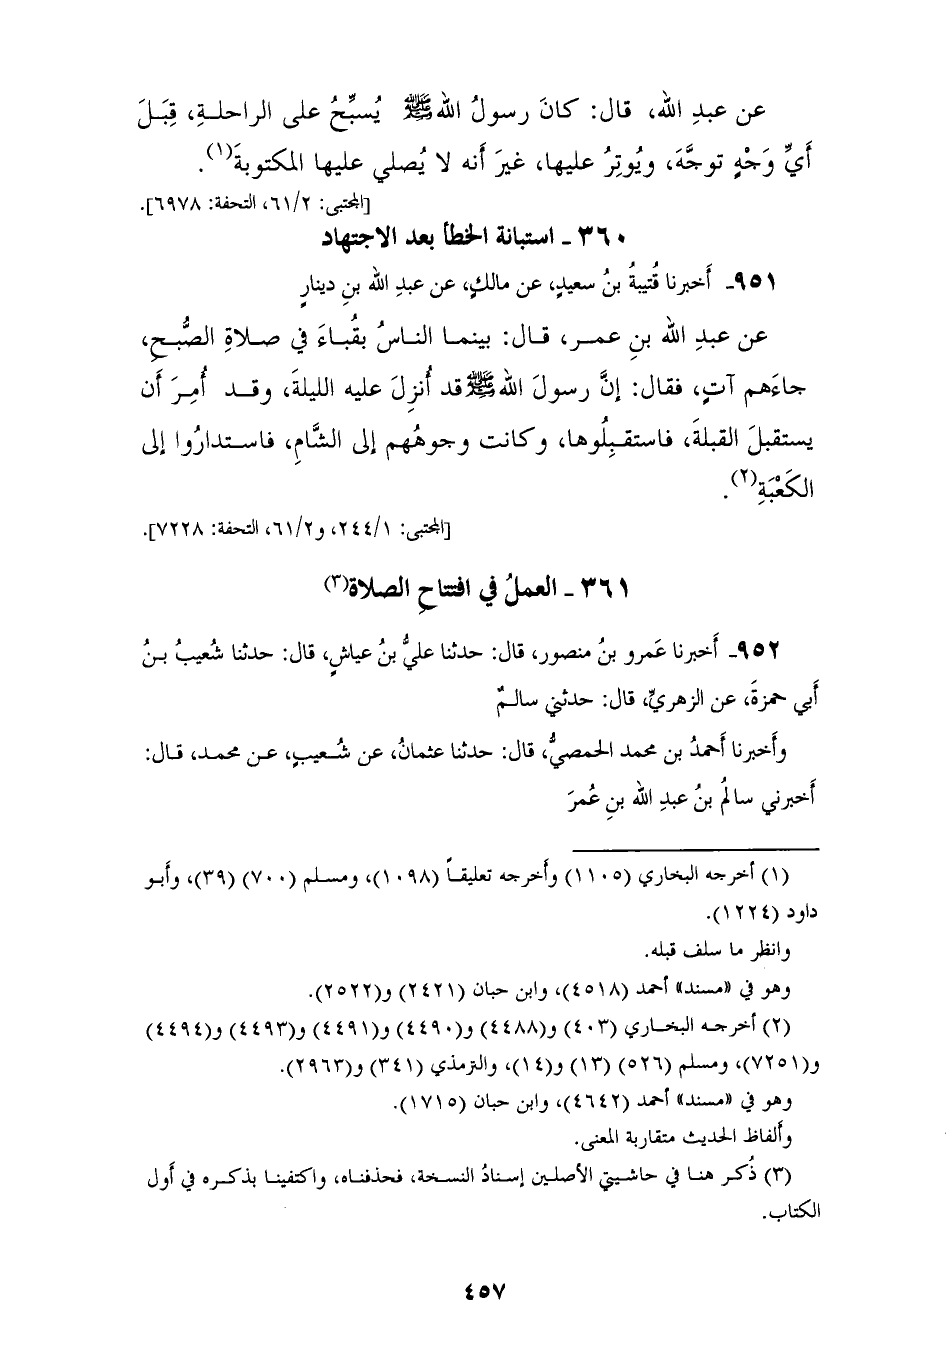 عن عبدِ الله، قال: كانَ رسولُ الله ﷺ يُسبِّحُ على الراحلـةِ، قِبَـلَ
أَيِّ وَجْهٍ توجَّهَ، ويُوتِرُ عليها، غيرَ أنه لا يُصلي عليها المكتوبةَ(١).
[المجتبى: ٦١/٢، التحفة: ٦٩٧٨].
٣٦٠ ـ استبانة الخطأ بعد الاجتهاد
٩٥١ـ أَخبرنا قُتيبةُ بنُ سعيدٍ، عن مالكٍ، عن عبدِ الله بنِ دينارٍ
عن عبدِ الله بنِ عمـر، قـال: بينمـا النـاسُ بقُبـاءَ في صـلاةِ الصُّبـحِ،
جاءَهم آتٍ، فقال: إنَّ رسولَ الله ﷺ قد أُنزِلَ عليه الليلةَ، وقـد أُمِـرَ أن
يستقبلَ القبلةَ، فاستقـبِلُوها، وكانت وجوهُهم إلى الشَّامِ، فاسـتدارُوا إلى
الكَعْبَةِ(٢).
[المجتبى: ٢٤٤/١، و٦١/٢، التحفة: ٧٢٢٨].
٣٦١ ـ العملُ في افتتاحِ الصلاة(٣)
٩٥٢ـ أَخبرنا عَمرو بنُ منصور، قال: حدثنا عليُّ بنُ عياشٍ، قال: حدثنا شُعيبُ بـنُ
أَبي حمزةَ، عن الزهريِّ، قال: حدثني سالـمٌ
وأَخبرنا أَحمدُ بن محمد الحمصيُّ، قال: حدثنا عثمانُ، عن شُـعيبٍ، عـن محمـد، قـال:
أَخبرني سالمُ بنُ عبدِ الله بنِ عُمرَ
(١) أخرجه البخاري (١١٠٥) وأخرجه تعليقـاً (١٠٩٨)، ومسلم (٧٠٠) (٣٩)، وأبـو
داود (١٢٢٤).
وانظر ما سلف قبله.
وهو في «مسند» أحمد (٤٥١٨)، وابن حبان (٢٤٢١) و(٢٥٢٢).
(٢) أخرجـه البخـاري (٤٠٣) و(٤٤٨٨) و(٤٤٩٠) و(٤٤٩١) و(٤٤٩٣) و(٤٤٩٤)
و(٧٢٥١)، ومسلم (٥٢٦) (١٣) و(١٤)، والترمذي (٣٤١) و(٢٩٦٣).
وهو في «مسند» أحمد (٤٦٤٢)، وابن حبان (١٧١٥).
وألفاظ الحديث متقاربة المعنى.
(٣) ذُكـر هنـا في حاشيتي الأصلـين إسنادُ النسخـة، فحذفنـاه، واكتفينـا بذكـره في أول
الكتاب.
٤٥٧